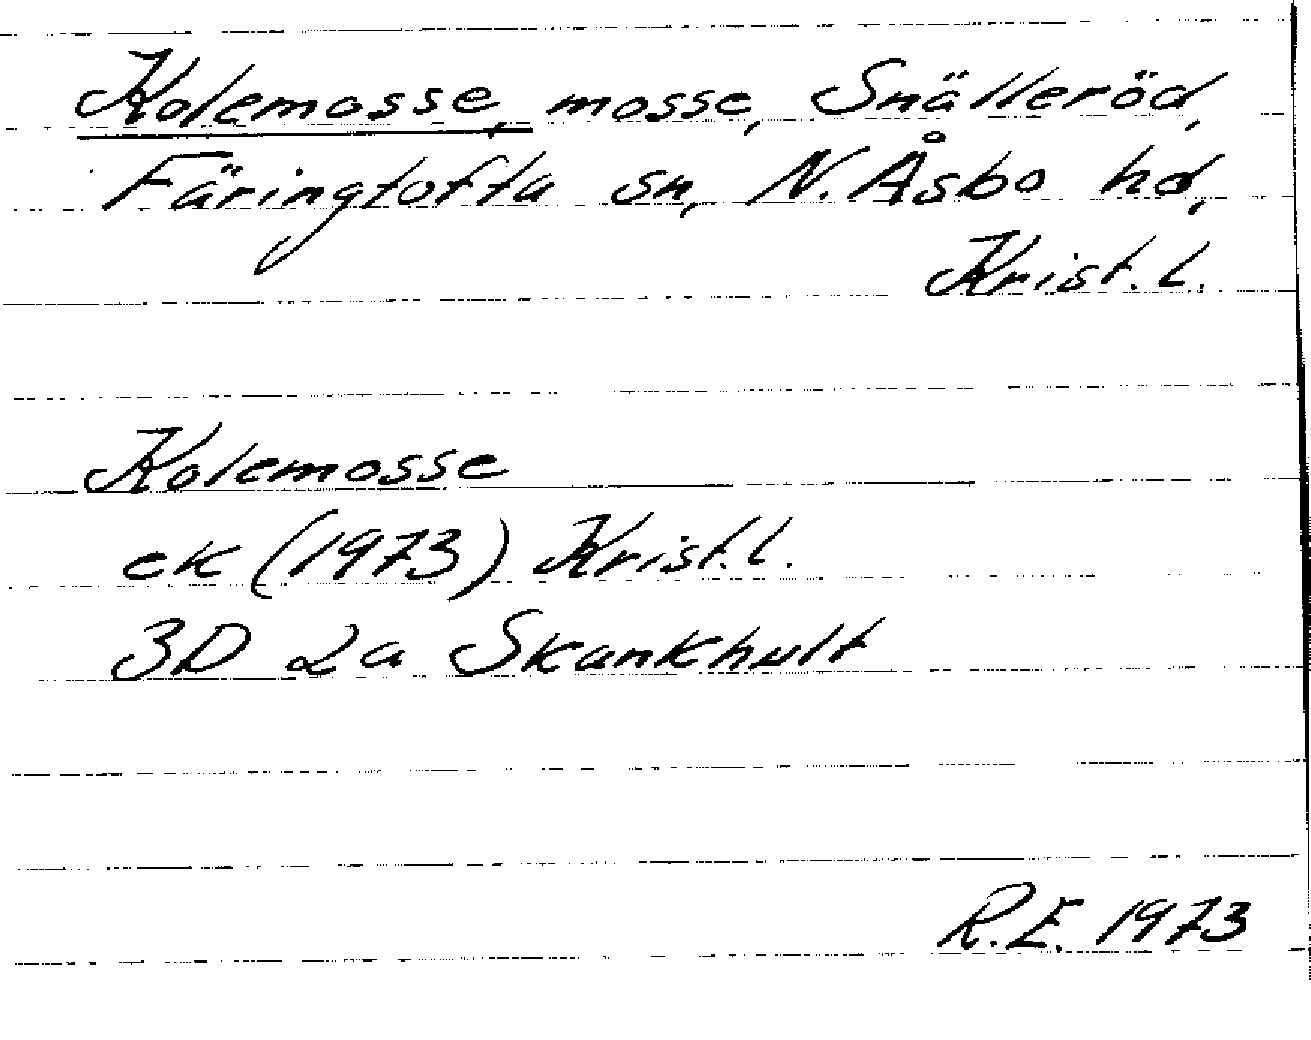 Kolemosse, mosse, Snälleröd,
Färingtofta sn, N. Åsbo hd,
Krist. l.
Kolemosse
ek (1973) Krist. l.
3D 2a Skankhult
R.E. 1973